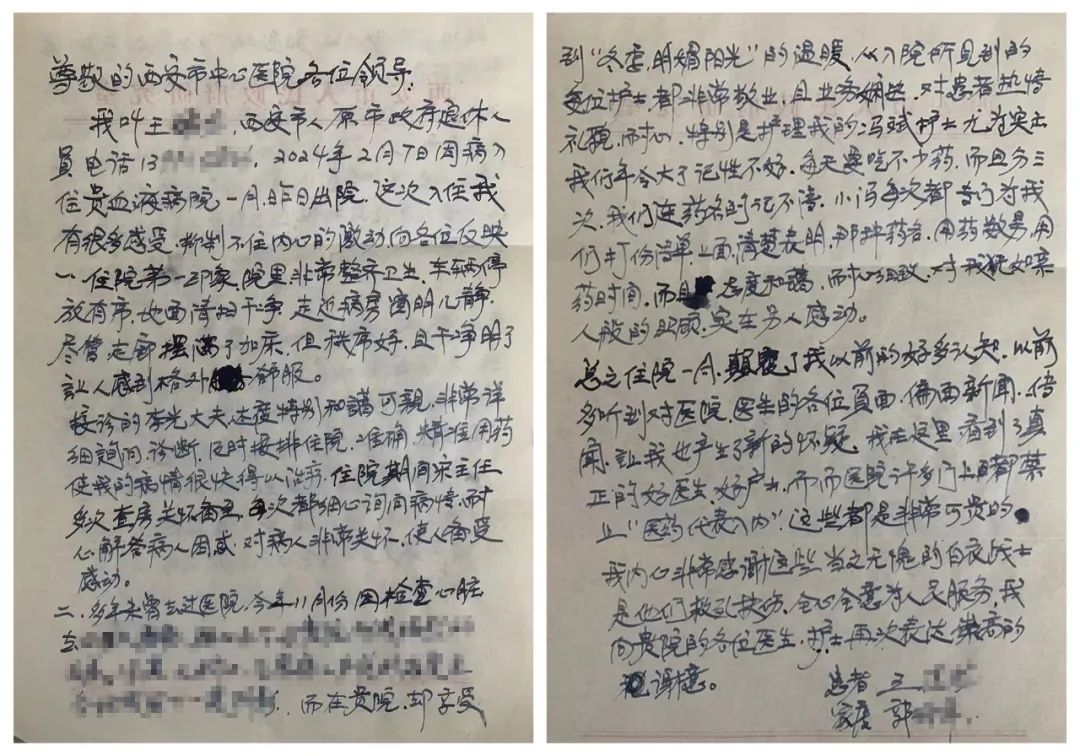 尊敬的西安市中心医院各位领导:
我叫王 ,西安市人原市政府退休人
员电话13 ,2024年2月7日因病入
住贵血液病院一月,昨日出院,这次入住我
有很多感受,抑制不住内心的激动向各位反映
一.住院第一印象,院里非常整齐卫生,车辆停
放有序,地面清扫干净,走近病房窗明几静,
尽管走廊摆满了加床,但秩序好,且干净明了
让人感到格外舒服。
接诊的李光大夫,态度特别和谐可亲,非常详
细询问,诊断,及时按排住院,准确,精准用药
使我的病情很快得以治疗,住院期间宋主任
多次查房关怀备至,每次都细心询问病情,耐
心解答病人困惑,对病人非常关怀,使人备受
感动。
二.多年未曾去过医院,今年11月份因检查心脏
去
,而在贵院,却享受
到“冬季,明媚阳光”的温暖,从入院所见到的
每位护士都非常敬业,且业务娴熟,对患者热情
礼貌,耐心,特别是护理我的冯斌护士尤为突出
我们年令大了记性不好,每天要吃不少药,而且分三
次,我们连药名时记不清,小冯每次都专门为我
们打份清单,上面,清楚表明,那种药名,用药数另,用
药时间,而且态度和谐,而心细致,对我就如亲
人般的照顾,实在另人感动。
总之住院一月,颠覆了我以前的好多认知,以前
多听到对医院,医生的各位负面,偏面新闻,传
闻,让我也产生了新的怀疑,我在这里看到了真
正的好医生,好护士,而而医院许多门上面都禁
止“医药代表入内”,这些都是非常可贵的。
我内心非常感谢这些当之无愧的白衣战士
是他们救死扶伤,全心全意为人民服务,我
向贵院的各位医生,护士再次表达崇高的
谢意。
患者 王
家属 郭